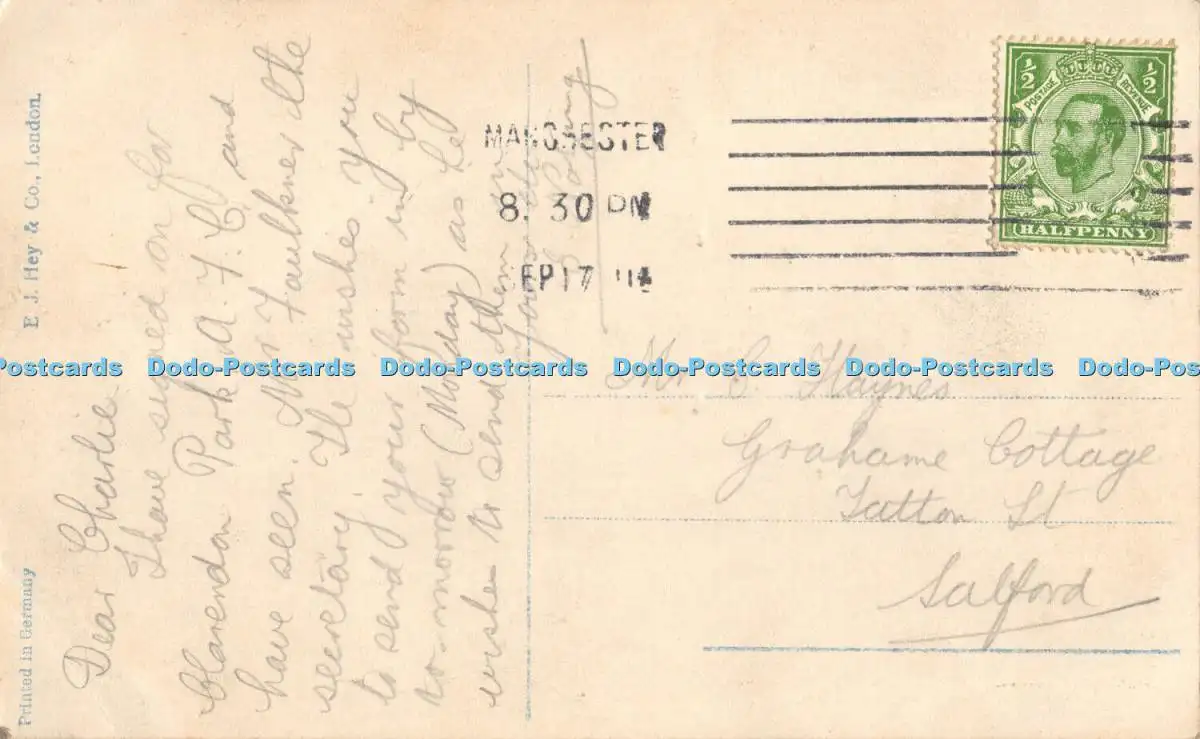 Dear Charlie
I have signed on for
Clarendon Park A.F.C. and
have seen Mr Faulkner the
secretary. He wishes you
to send your form in by
to-morrow (Monday) as he
wishes to send them on
Yours
MANCHESTER
8. 30 PM
SEP 17 14
½ ½
POSTAGE REVENUE
HALFPENNY
Mr C Haynes
Grahame Cottage
Tatton St
Salford
E. J. Hey & Co., London.
Printed in Germany
Dodo-Postcards Dodo-Postcards Dodo-Postcards Dodo-Postcards Dodo-Postcards Dodo-Pos